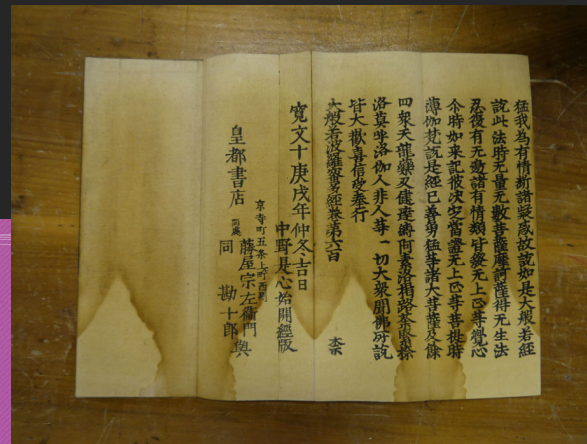 猛我為有情斷諸疑惑故說如是大般若經
說此法時无量无數菩薩摩訶薩得无生法
忍復有无邊諸有情類皆發无上正等覺心
尒時如來記彼決定當證无上正等菩提時
薄伽梵說是經已善勇猛等諸大菩薩及餘
四衆天龍藥叉健達縛阿素洛揭路荼緊捺
洛莫呼洛伽人非人等一切大衆聞佛所說
皆大歡喜信受奉行
大般若波羅蜜多經卷第六百 柰
寛文十庚戌年仲冬吉日
中野是心始開經版
京寺町五条上町西側
皇都書店 藤屋宗左衛門 與
同處
同 勘十郎